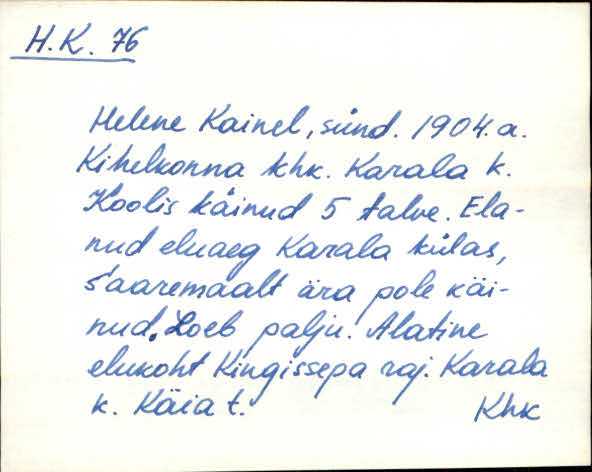 H.K. 76
Helene Kainel, sünd. 1904. a.
Kihelkonna khk. Karala k.
Koolis käinud 5 talve. Ela-
nud eluaeg Karala külas,
Saaremaalt ära pole käi-
nud. Loeb palju. Alatine
elukoht Kingissepa raj. Karala
k. Käia t.
Khk